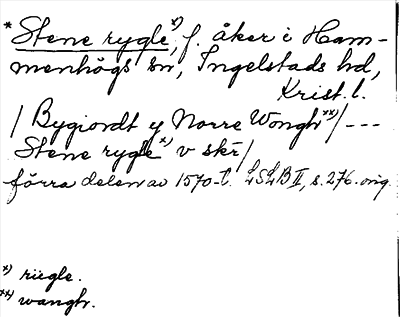 * Stene rygle*), f. åker i Ham-
menhögs sn, Ingelstads hd,
Krist. l.
/ Bygiordt y Norre Wongh**) / ---
Stene rygle*) v skr /
förra delen av 1570-t. LSLB II, s. 276. orig.
*) riegle.
**) wangh.